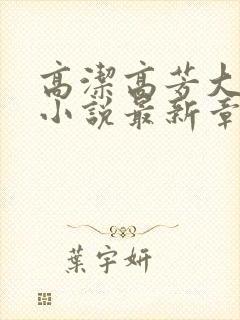 高潔高芳大
小說最新章
葉宇妍